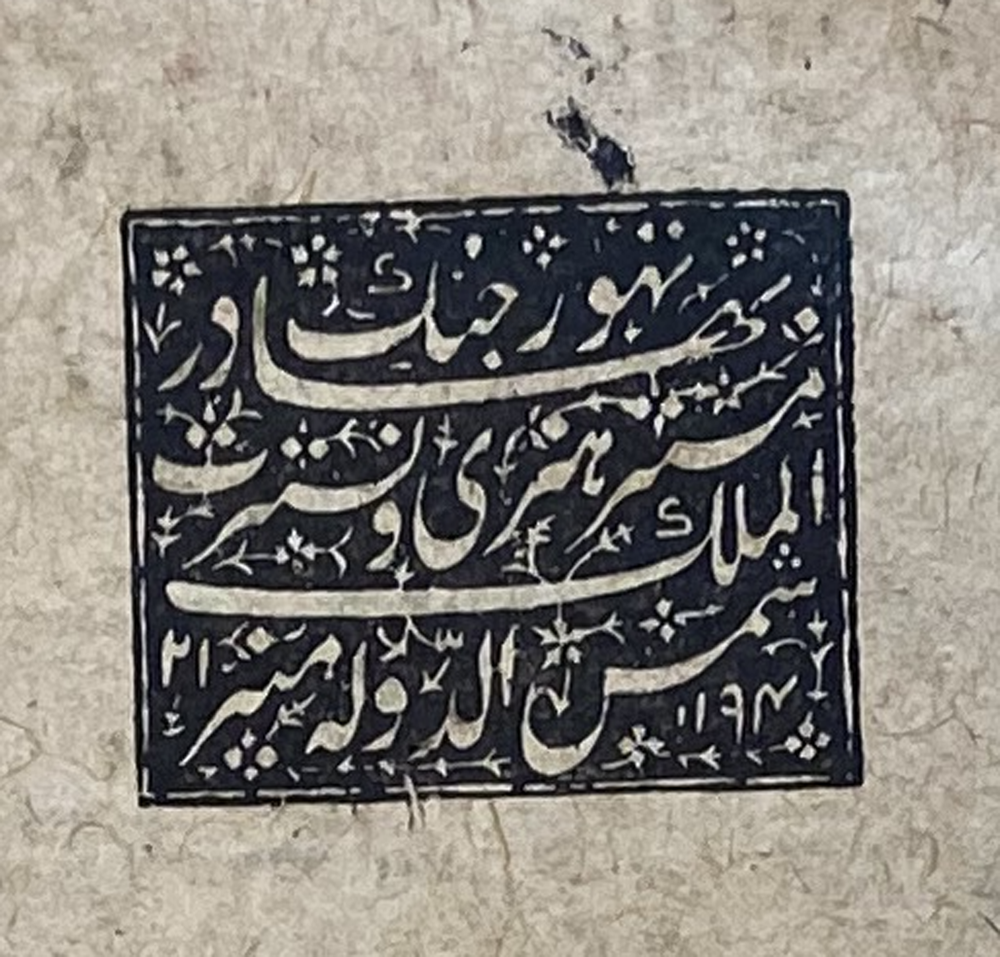 تهور جنک بهادر
مستر هنری ونسترت
الملک
شمس الدوله منیر ۲۱
۱۱۹۴